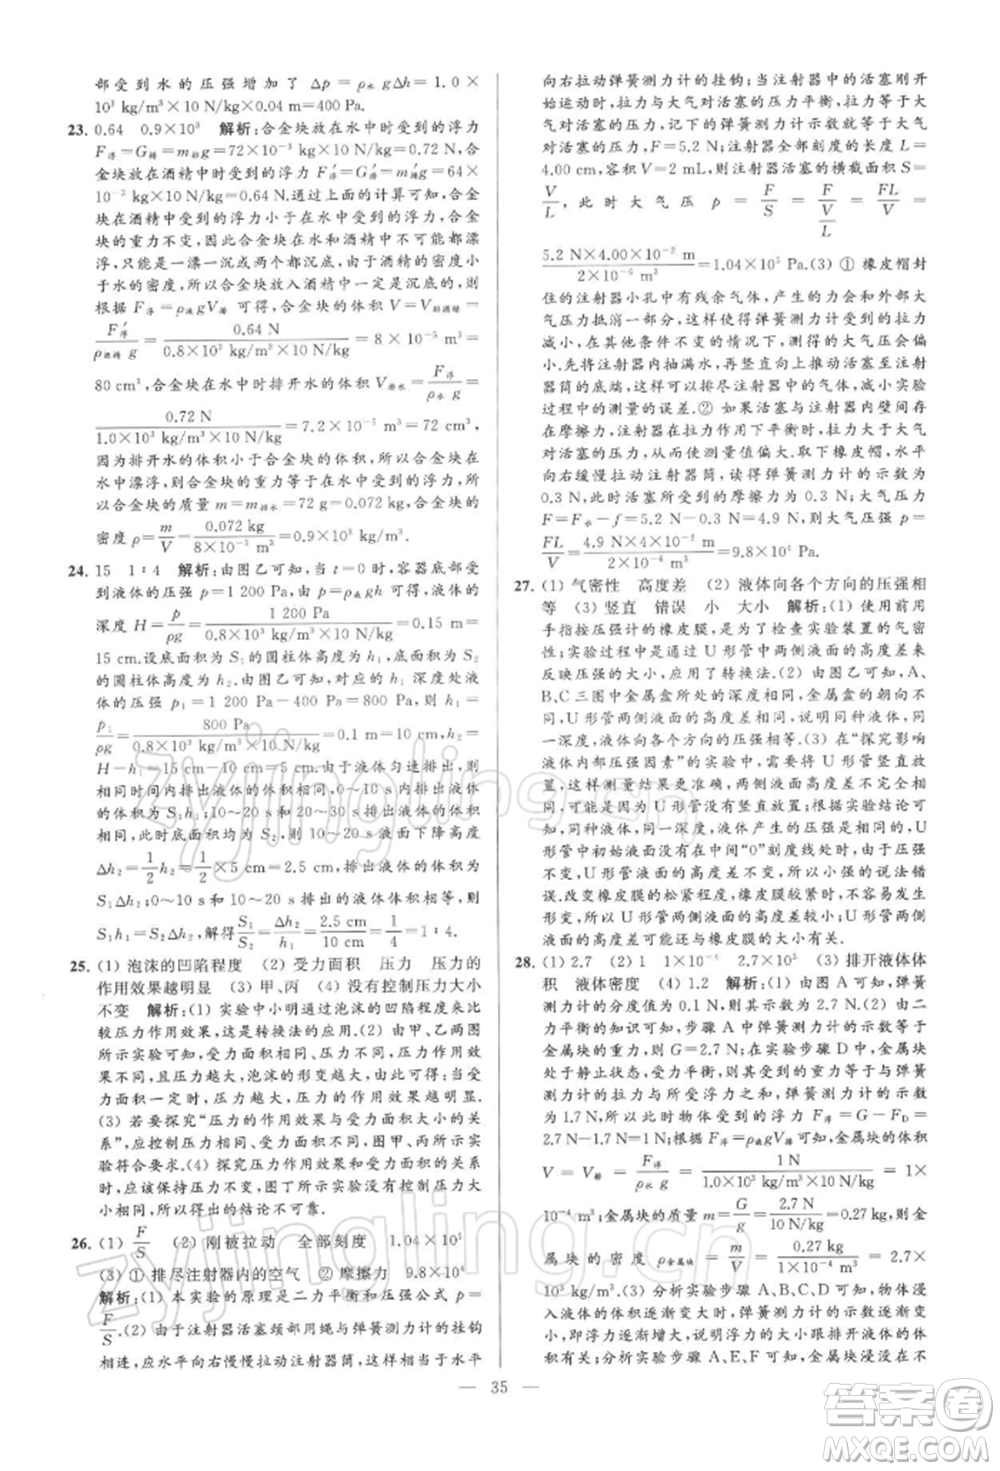 部受到水的压强增加了 Δp = ρ水gΔh = 1.0 ×
10³ kg/m³×10 N/kg×0.04 m=400 Pa.
23. 0.64 0.9×10³ 解析:合金块放在水中时受到的浮力
F浮=G排=m排g=72×10⁻³ kg×10 N/kg=0.72 N,合
金块放在酒精中时受到的浮力 F浮′=G排′=m排′g=64×
10⁻³ kg×10 N/kg=0.64 N.通过上面的计算可知,合金
块在酒精中受到的浮力小于在水中受到的浮力,合金块
的重力不变,因此合金块在水和酒精中不可能都漂
浮,也不可能是一漂一沉或两种都沉底,由于酒精的密度小
于水的密度,因此合金块放入酒精中一定是沉底的,则
根据 F浮=ρ液gV排 可得,合金块的体积 V=V排酒精=
F浮′/(ρ酒精 g) = 0.64 N/(0.8×10³ kg/m³×10 N/kg) = 8 × 10⁻⁵ m³ =
80 cm³,合金块在水中时排开水的体积 V排水= F浮/(ρ水 g) =
0.72 N/(1.0×10³ kg/m³×10 N/kg)=7.2×10⁻⁵ m³=72 cm³,
因为排开水的体积小于合金块的体积,所以合金块在
水中漂浮,则合金块的重力等于在水中受到的浮力,所
以合金块的质量 m=m排水=72 g=0.072 kg,合金块的
密度 ρ= m/V = 0.072 kg/(8×10⁻⁵ m³)=0.9×10³ kg/m³.
24. 15 1∶4 解析:由图乙可知,当 t=0 时,容器底部受
到液体的压强 p=1 200 Pa,由 p=ρgh 可得,容器中液体的
深度 H= p/ρg = 1 200 Pa/(0.8×10³ kg/m³×10 N/kg)=0.15 m=
15 cm.设底面积为 S₁ 的圆柱体高度为 h₁,底面积为 S₂
的圆柱体高度为 h₂,由图乙可知,对应的 h₁ 深度处液
体的压强 p₁=1 200 Pa-400 Pa=800 Pa,则 h₁=
p₁/ρg = 800 Pa/(0.8×10³ kg/m³×10 N/kg)=0.1 m=10 cm,h₂=
H-h₁=15 cm-10 cm=5 cm.由于液体匀速排出,则
相同时间内排出液体的体积相同,0~10 s和 10~
20 s的时间相同,则 0~10 s和 10~20 s排出液体的体积
相同,此时底面积均为 S₂,则 10~20 s液面下降高度
Δh₂= 1/2 h₂= 1/2×5 cm=2.5 cm,排出液体的体积为
S₂Δh₂;0~10 s和 10~20 s排出液体的体积相同,则
S₁h₁=S₂Δh₂,解得 S₁/S₂=Δh₂/h₁= 2.5 cm/10 cm = 1/4 =1∶4.
25. (1) 泡沫的凹陷程度 (2) 受力面积 压力 压力的
作用效果越明显 (3) 甲、丙 (4) 没有控制压力大小
不变 解析:(1) 实验中小明通过泡沫的凹陷程度来比
较压力作用效果,这是转换法的应用.(2) 由甲、乙两图
所示实验可知,受力面积相同,压力越大,压力作用效
果越大,泡沫的形变越大,由此可得出结论:当受力面
积一定时,压力越大,压力的作用效果越明显.
(3) 若要探究“压力的作用效果与受力面积大小的关
系”,应控制压力大小相同,受力面积不同,图甲、丙所示实
验符合要求.(4) 探究压力作用效果与受力面积关系
时,应该保持压力不变,而图丁实验中没有控制压力大小
不变,所以得出的结论不可靠.
26. (1) F/S (2) 刚被拉动 全部刻度 1.04×10⁵
(3) ① 排尽注射器内的空气 ② 摩擦力 9.8×10⁴
解析:(1) 本实验的原理是二力平衡和压强公式 p=
F/S.(2) 由于注射器活塞颈部用绳与弹簧测力计的挂钩
相连,应水平向右慢慢拉动注射器筒,这样相当于水平
向右拉动弹簧测力计的挂钩;当注射器中的活塞刚开
始运动时,拉力与大气对活塞的压力平衡,拉力等于大
气对活塞的压力,记下弹簧测力计的示数,即为大气压
力,F=5.2 N;注射器全部刻度的长度 L=
4.00 cm,容积 V=2 mL,则注射器活塞的横截面积为
V/L,此时大气压 p = F/S = F/(V/L) = FL/V =
5.2 N×4.00×10⁻² m/(2×10⁻⁶ m³)=1.04×10⁵ Pa.(3) ① 橡皮帽封
住的注射器小孔中有残余气体,产生的力会和外部大
气压力抵消一部分,这样使得弹簧测力计受到的拉力
减小,在其他条件不变的情况下,测得的大气压会偏
小.先将注射器内抽满水,再竖直向上推动活塞至注射
器筒的底端,这样可以排尽注射器内空气,减小实验
过程中的测量的误差.② 如果活塞与注射器内壁间存
在摩擦力,拉力和摩擦力作用下平衡时,拉力大于大气
压力,从而使测量值偏大.取下橡皮帽,水平
向右缓慢拉动注射器筒,读得弹簧测力计的示数为
0.3 N,则活塞受到的摩擦力为 0.3 N,大气压力
F=F示-f=5.2 N-0.3 N=4.9 N,则大气压强 p=
FL/V = 4.9 N×4×10⁻² m/(2×10⁻⁶ m³)=9.8×10⁴ Pa.
27. (1) 气密性 高度差 (2) 液体向各个方向的压强相
等 (3) 竖直 错误 小 大小 解析:(1) 使用前用
手指按压强计的橡皮膜,是为了检查实验装置的气密
性;实验过程中,通过观察 U 形管中两侧液面高度差来
反映压强的大小,运用了转换法.(2) 由图可知,A、
B、C三图中金属盒所处的深度相同,金属盒的朝向不
同,U 形管两侧液面的高度差相同,说明同种液体,同
一深度,液体向各个方向的压强相等.(3) 在“探究影响
液体内部压强因素”的实验中,U 形管应竖直
放置,如果倾斜放置,两侧液面的高度差会不
同,可能是因为 U 形管没有竖直放置;根据实验结论可
知,相同液体,深度相同时,液体产生的压强是相同的,U
形管中如实验前液面不在中间“0”刻度线是因为实验前橡皮管中
有气体,不会影响实验结果,所以小明的说法错
误.改变橡皮膜的松紧程度,橡皮膜较紧时,不容易发生
形变,所以 U 形管两侧液面的高度差较小,U 形管两侧液
面的高度差大小与橡皮膜的松紧程度有关.
28. (1) 2.7 (2) 1 2.7×10³ (3) 排开液体体
积 液体密度 (4) 1.2 解析:(1) 由图可知,弹簧
测力计的分度值为 0.1 N,其示数为 2.7 N.(2) 由二
力平衡的知识可知,步骤 A 中弹簧测力计的示数等于
金属块的重力,则 G=2.7 N,实验步骤 D 中,金属块处
于静止状态,受力平衡,所受浮力与弹簧测力计的
拉力之和与金属块的重力是一对平衡力,弹簧测力计的示数
为 1.7 N,所以此时物体受到的浮力 F浮=G-F_D=
2.7 N-1.7 N=1 N;根据 F浮=ρ液gV排 可知,金属块的体积
V = V排 = F浮/(ρ水 g) = 1 N/(1.0×10³ kg/m³×10 N/kg) = 1×
10⁻⁴ m³,金属块的质量 m= G/g = 2.7 N/(10 N/kg)=0.27 kg,则金
属块的密度 ρ金属块= m/V = 0.27 kg/(1×10⁻⁴ m³) = 2.7×
10³ kg/m³.(3) 分析实验步骤 A、B、C、D 可知,金属块
浸入液体的体积逐渐增大时,弹簧测力计示数逐渐变
小,即浮力逐渐变大,说明浮力的大小跟排开液体的体
积有关;分析实验步骤 A、E、F 可知,金属块浸没在不
— 35 —
zyjingling.cn
zyjingling.cn
答案圈
MXQE.COM